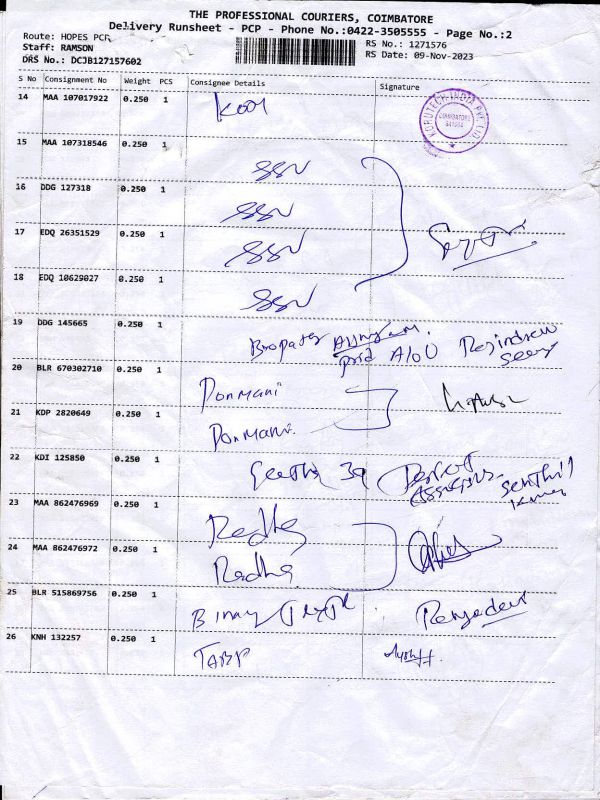 THE PROFESSIONAL COURIERS, COIMBATORE
Delivery Runsheet - PCP - Phone No.:0422-3505555 - Page No.:2
Route: HOPES PCP
Staff: RAMSON
DRS No.: DCJB127157602
RS No.: 1271576
RS Date: 09-Nov-2023
S No Consignment No Weight PCS Consignee Details Signature
14 MAA 107017922 0.250 1
15 MAA 107318546 0.250 1 SSN
16 DDG 127318 0.250 1 SSN
17 EDQ 26351529 0.250 1 SSN
18 EDQ 10629027 0.250 1 SSN
19 DDG 145665 0.250 1
20 BLR 670302710 0.250 1 Ponmani
21 KDP 2820649 0.250 1 Ponmani
22 KDI 125850 0.250 1 Geetha
23 MAA 862476969 0.250 1 Radha
24 MAA 862476972 0.250 1 Radha
25 BLR 515869756 0.250 1 Binny Renyadevi
26 KNH 132257 0.250 1 TABP